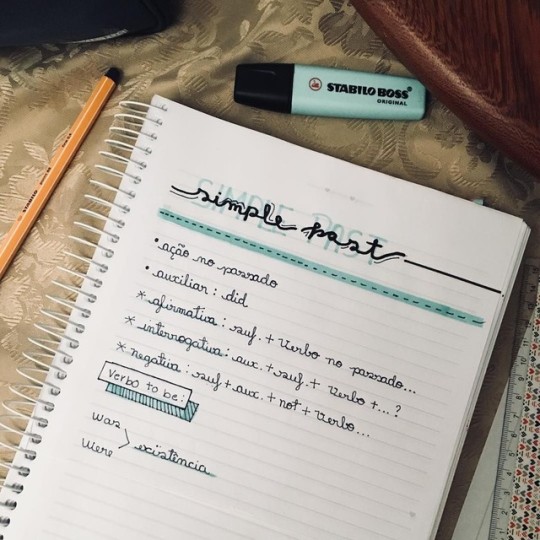 STABILO BOSS
ORIGINAL
SIMPLE PAST
simple past
• ação no passado
• auxiliar : did
* afirmativa : suj. + verbo no passado...
* interrogativa : aux. + suj. + verbo +... ?
* negativa : suj + aux. + not + verbo...
verbo to be :
was
were
existência